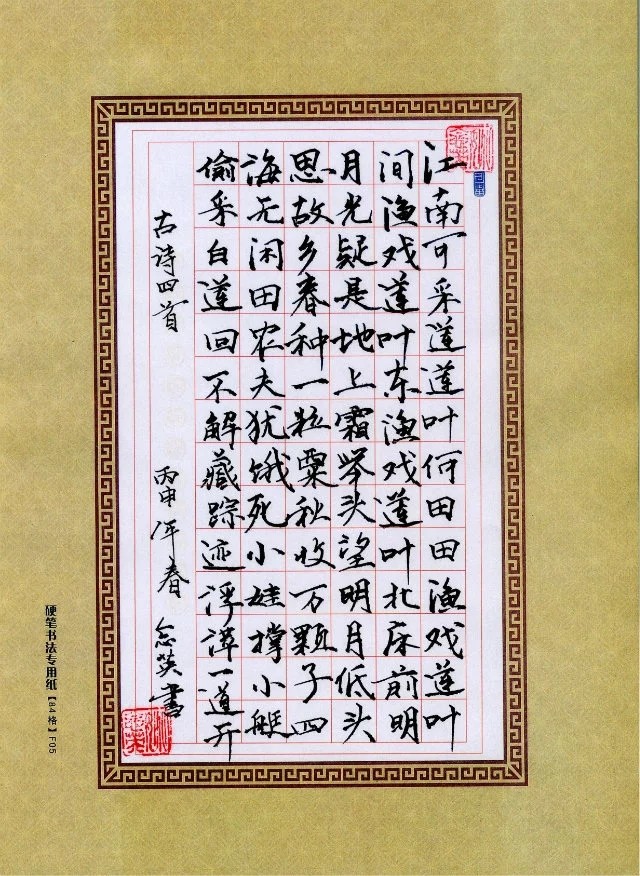 江南可采莲莲叶何田田渔戏莲叶
间渔戏莲叶东渔戏莲叶北床前明
月光疑是地上霜举头望明月低头
思故乡春种一粒粟秋收万颗子四
海无闲田农夫犹饿死小娃撑小艇
偷采白莲回不解藏踪迹浮萍一道开
古诗四首 丙申年春 念英書
硬笔书法专用纸【84格】F05